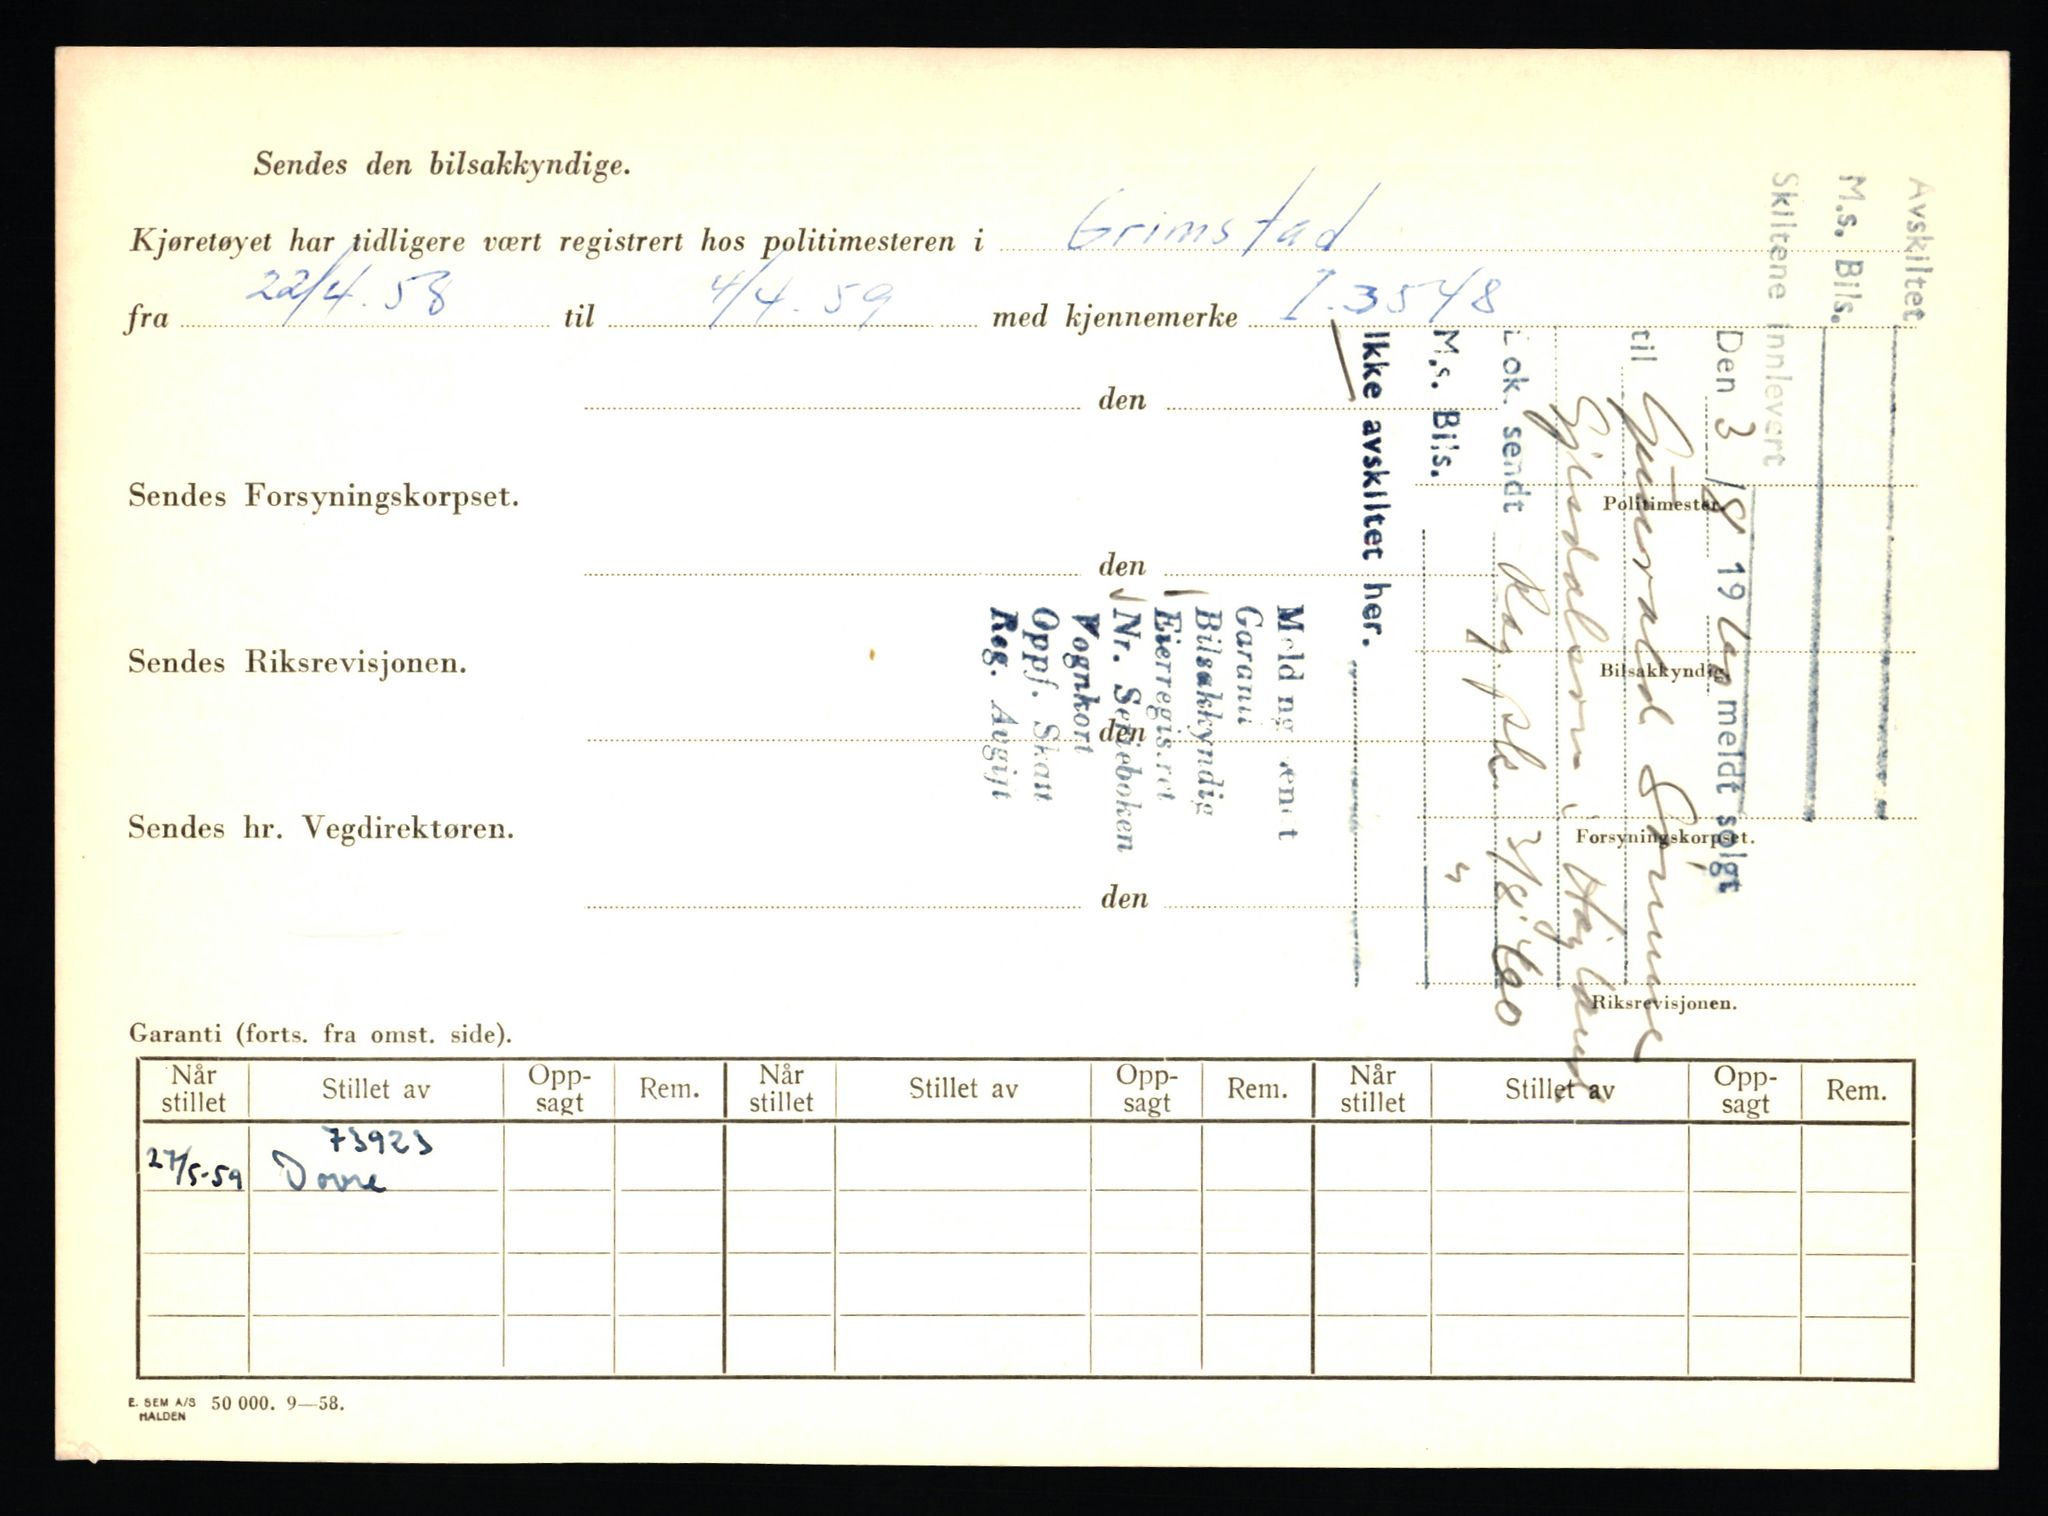 Sendes den bilsakkyndige.
Kjøretøyet har tidligere vært registrert hos politimesteren i Grimstad
fra 22/4. 58 til 4/4. 59 med kjennemerke I. 3548
den
Politimester.
Sendes Forsyningskorpset.
den
Bilsakkyndig.
Sendes Riksrevisjonen.
den
Forsyningskorpset.
Sendes hr. Vegdirektøren.
den
Riksrevisjonen.
Avskiltet
M.s. Bils.
Skiltene innlevert
Den 3/8 1960 meldt solgt
til Gunvald
i Høyland
L ok. sendt 3/8 '60
M.s. Bils. "
Ikke avskiltet her.
Melding sendt
Garanti
Bilsakkyndig
Eierregistret
Nr. Serieboken
Vognkort
Oppf. Skatt
Reg. Avgift
Garanti (forts. fra omst. side).
Når stillet Stillet av Opp-sagt Rem. Når stillet Stillet av Opp-sagt Rem. Når stillet Stillet av Opp-sagt Rem.
73923
27/5-59 Dovre
E. SEM A/S HALDEN 50 000. 9—58.